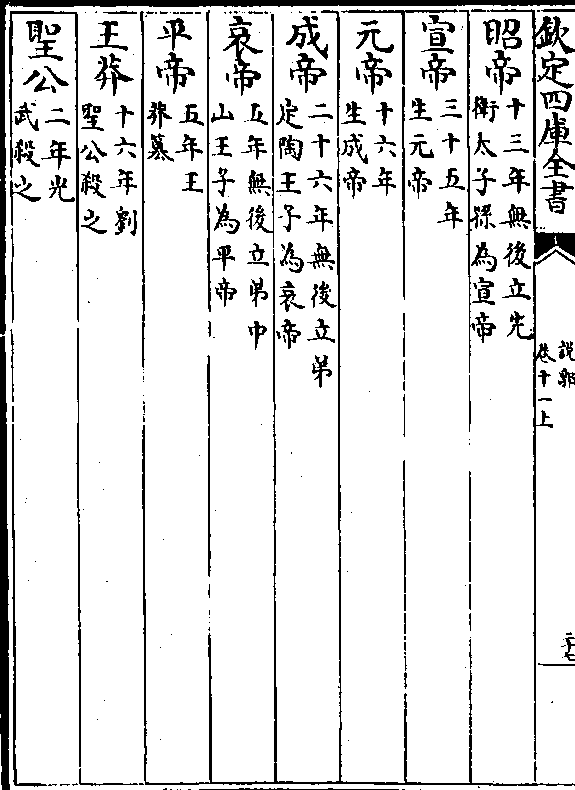 欽定四庫全書
說郛
卷十一上
昭帝 十三年無後立先
衛太子孫為宣帝
宣帝 三十五年
生元帝
元帝 十六年
生成帝
成帝 二十六年無後立弟
定陶王子為哀帝
哀帝 五年無後立弟中
山王子為平帝
平帝 五年王
莽簒
王莽 十六年劉
聖公殺之
聖公 二年光
武殺之